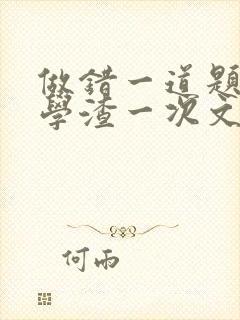 做錯一道題
學渣一次文
何雨